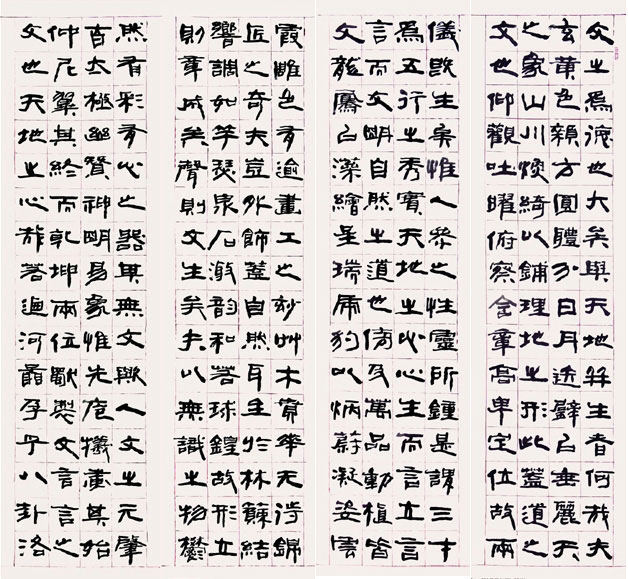 文之為德也大矣與天地并生者何哉夫
玄黃色雜方圓體分日月迭璧以垂麗天
之象山川煥綺以鋪理地之形此蓋道之
文也仰觀吐曜俯察含章高卑定位故兩
儀既生矣惟人參之性靈所鍾是謂三才
為五行之秀實天地之心心生而言立言
言而文明自然之道也傍及萬品動植皆
文龍鳳以藻繪呈瑞虎豹以炳蔚凝姿雲
霞雕色有逾畫工之妙艸木賁華无待錦
匠之奇夫豈外飾蓋自然耳至於林籟結
響調如竽瑟泉石激韵和若球鍠故形立
則章成矣聲則文生矣夫以無識之物鬱
然有彩有心之器其無文歟人文之元肇
自太極幽贊神明易象惟先庖犧畫其始
仲尼翼其終而乾坤兩位獨製文言言之
文也天地之心哉若迺河圖孕乎八卦洛